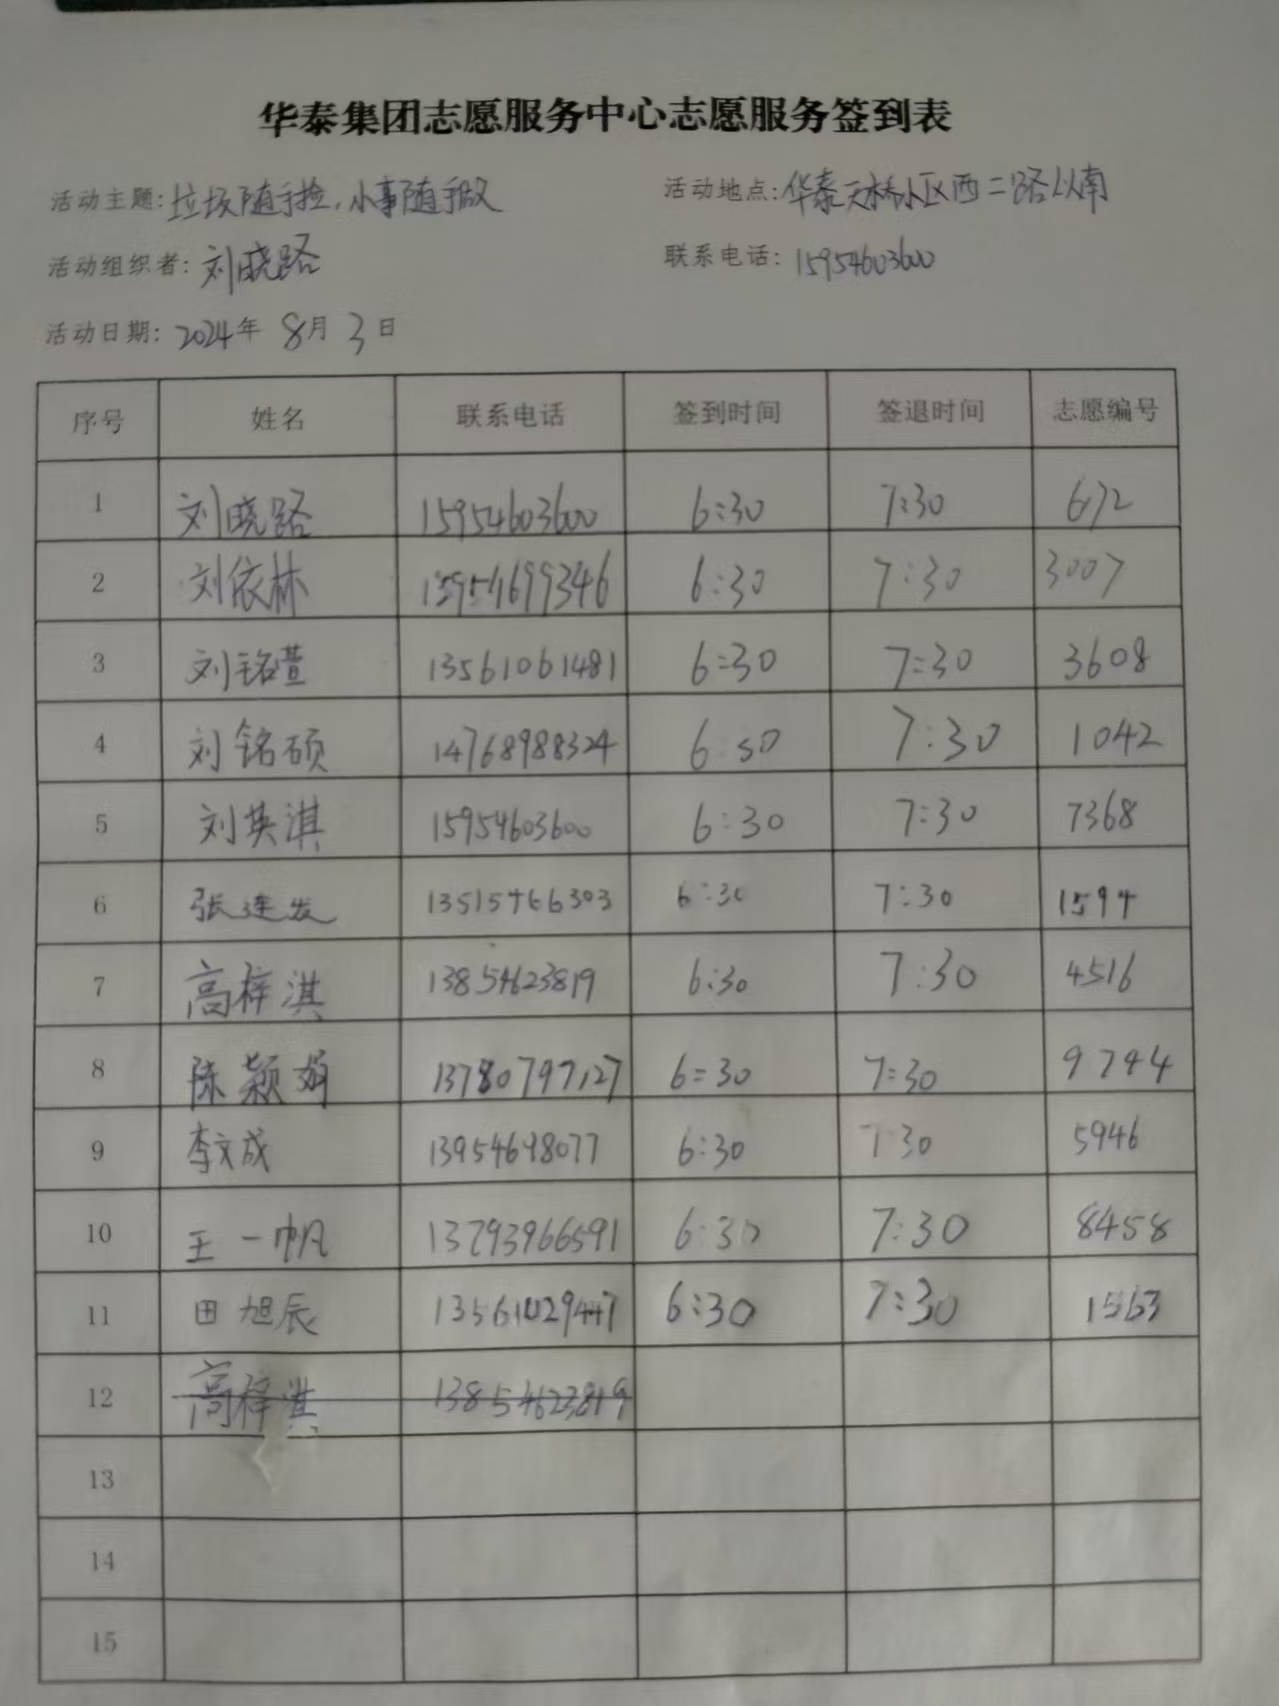 华泰集团志愿服务中心志愿服务签到表
活动主题：垃圾随手捡，小事随手做 活动地点：华泰天桥小区西二路以南
活动组织者：刘晓路 联系电话：15954603600
活动日期：2024年 8月 3日
序号 姓名 联系电话 签到时间 签退时间 志愿编号
1 刘晓路 15954603600 6:30 7:30 672
2 刘依林 15954699346 6:30 7:30 3007
3 刘铭萱 13561061481 6:30 7:30 3608
4 刘铭硕 14768988324 6:30 7:30 1042
5 刘英淇 15954603600 6:30 7:30 7368
6 张连发 13515466303 6:30 7:30 1594
7 高梓淇 13854623819 6:30 7:30 4516
8 陈颖娟 13780797127 6:30 7:30 9744
9 李文成 13954698077 6:30 7:30 5946
10 王一帆 13793966591 6:30 7:30 8458
11 田旭辰 13561029447 6:30 7:30 1563
12 高梓淇 13854623819
13
14
15